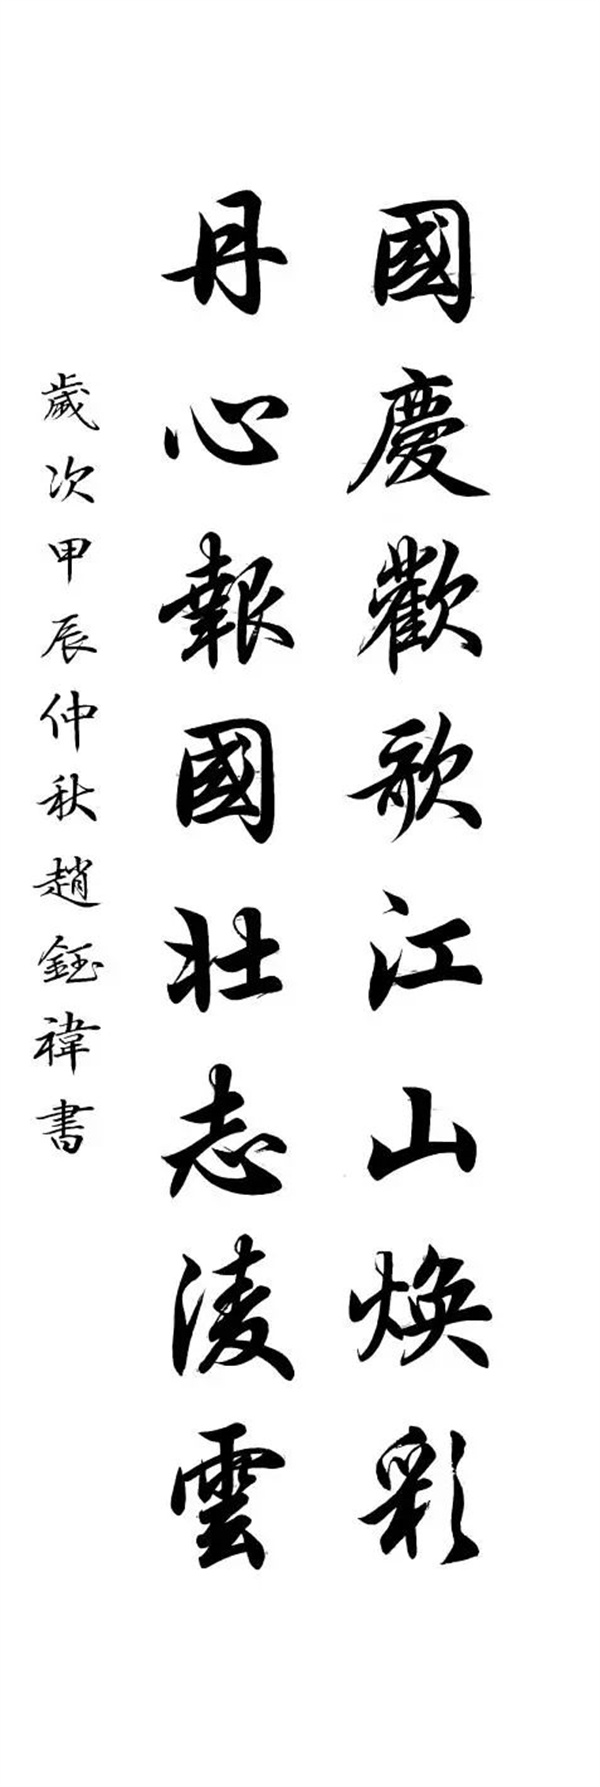 國慶歡歌江山煥彩
丹心報國壯志淩雲
歲次甲辰仲秋趙鈺褘書